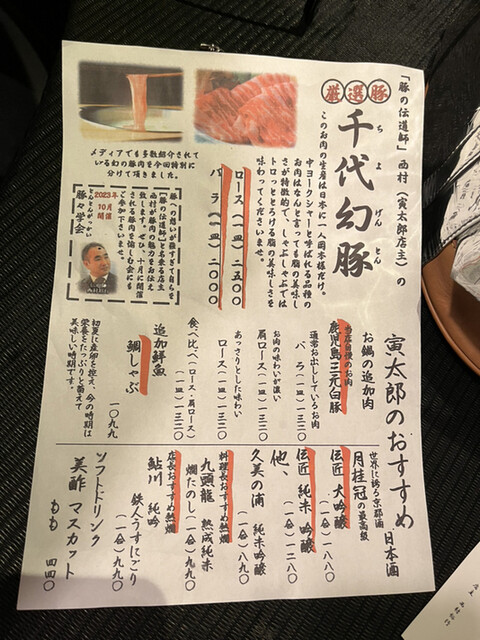 「豚の伝道師」西村（寅太郎店主）の
厳選豚
千代幻豚
ちよげんとん
このお肉の生産は日本に一人岡本様だけ。
中ヨークシャーと呼ばれる品種の
お肉はなんと言っても脂の美味し
さが特徴的で、しゃぶしゃぶでは
トロッととろける脂の美味しさを
味わってくださいませ。
ロース（一皿）二五〇〇
バラ（一皿）二〇〇〇
メディアでも多数紹介されて
いる幻の豚肉を今回特別に
分けて頂きました。
豚への想いが強すぎて自らを
「豚の伝道師」と名乗る店主
西村が豚肉の魅力をお伝え
致します。ぜひ、十月に開催
される豚肉を愉しむ会にも
ご参加下さいませ。
2023年
10月
開催
とんとんがっかい
豚々学会
寅太郎のおすすめ
お鍋の追加肉
当店自慢のお肉
鹿児島三元白豚
通常お出ししているお肉
バラ（一皿）一三二〇
お肉の味わいが濃い
肩ロース（一皿）一三二〇
あっさりとした味わい
ロース（一皿）一三二〇
食べ比べ（ロース・肩ロース）
（一皿）一三二〇
追加鮮魚
鯛しゃぶ
一〇九九
初夏に産卵を控え、今の時期は
栄養をたっぷりと蓄えて
美味しい時期です。
日本酒
世界に誇る京都酒
月桂冠の最高級
伝匠 大吟醸
（一合）一八八〇
伝匠 純米吟醸
（一合）一二八〇
他、
久美の浦 純米吟醸
（一合）八九〇
料理長おすすめ熱燗
九頭龍 熟成純米
燗たのし（一合）九九〇
店長おすすめ熱燗
鮎川 純吟
鉄人うすにごり
（一合）九九〇
ソフトドリンク
美酢 マスカット
もも 四四〇